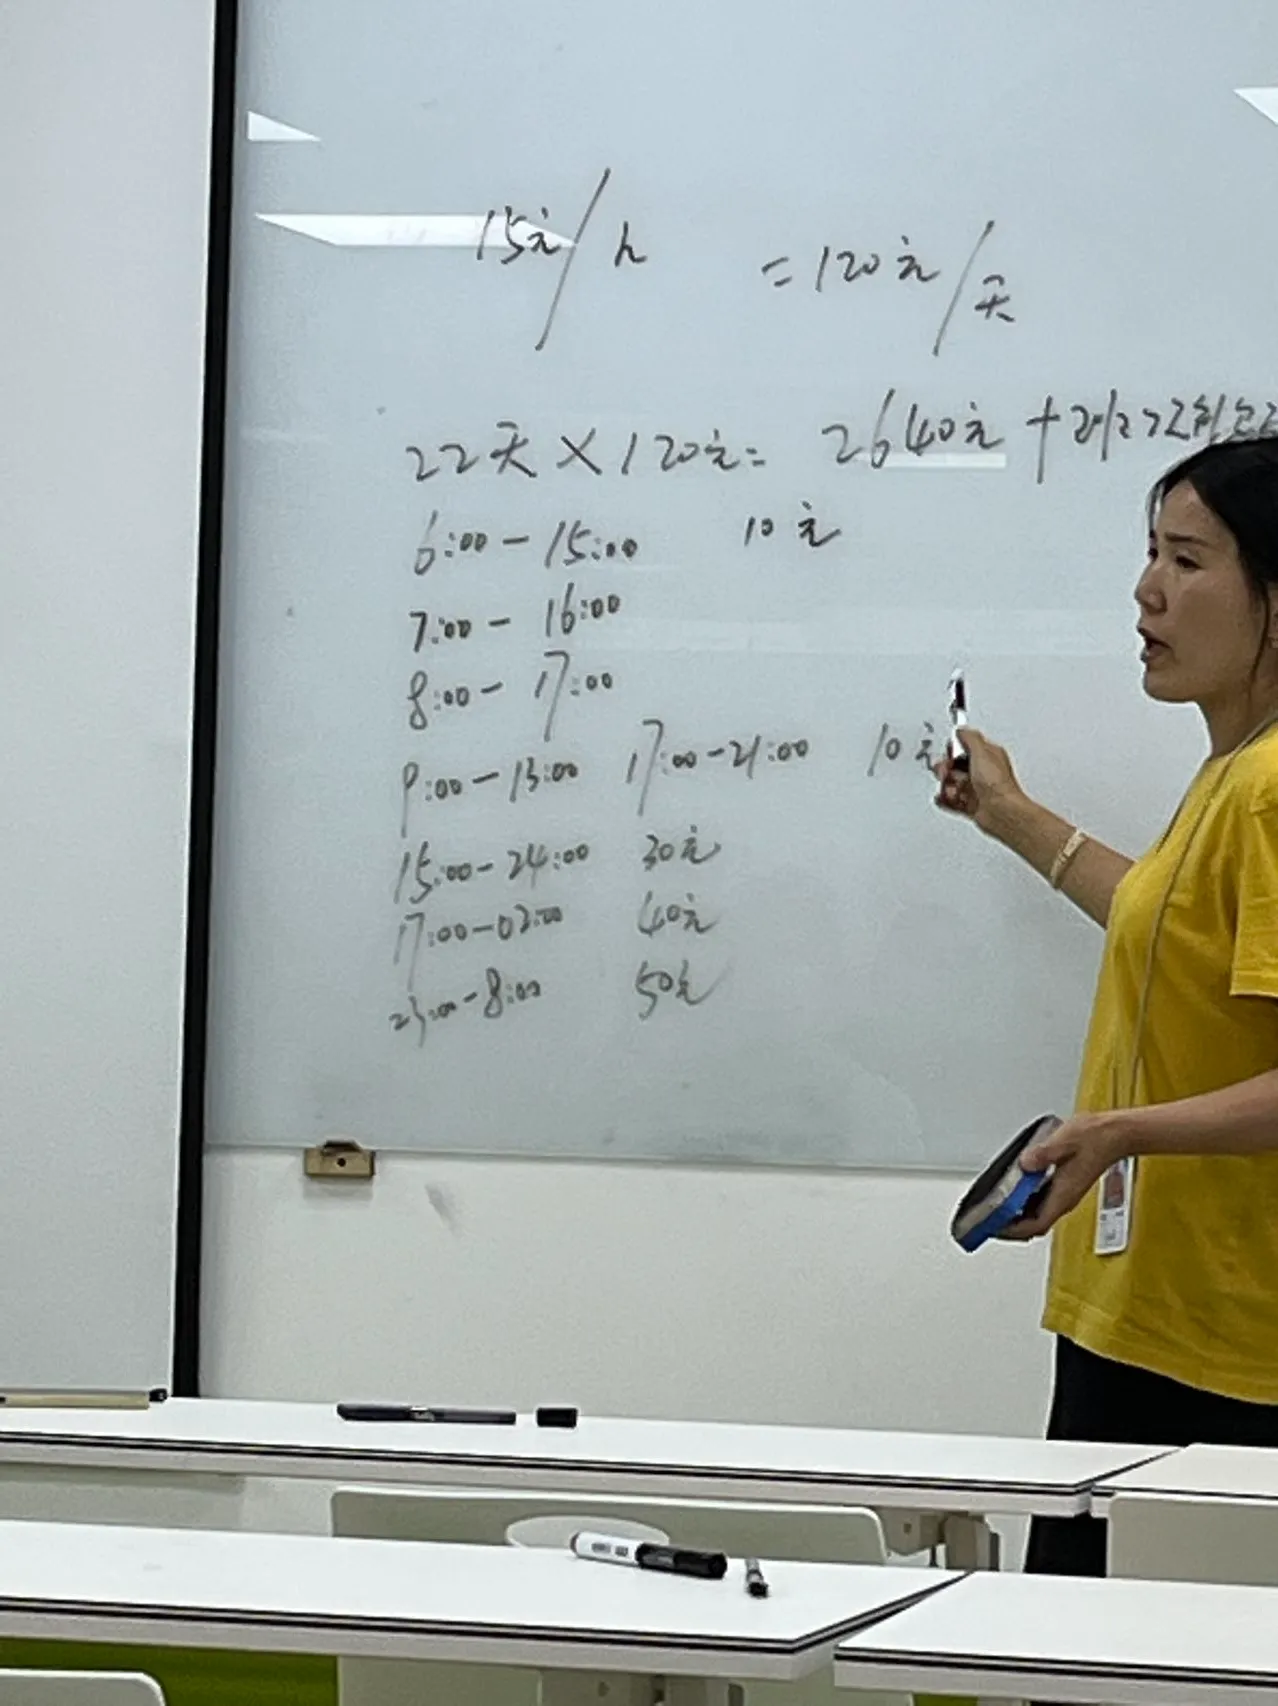 15元/h =120元/天
22天×120元= 2640元+
6:00-15:00 10元
7:00-16:00
8:00-17:00
9:00-13:00 17:00-21:00 10元
15:00-24:00 30元
17:00-02:00 40元
23:00-8:00 50元